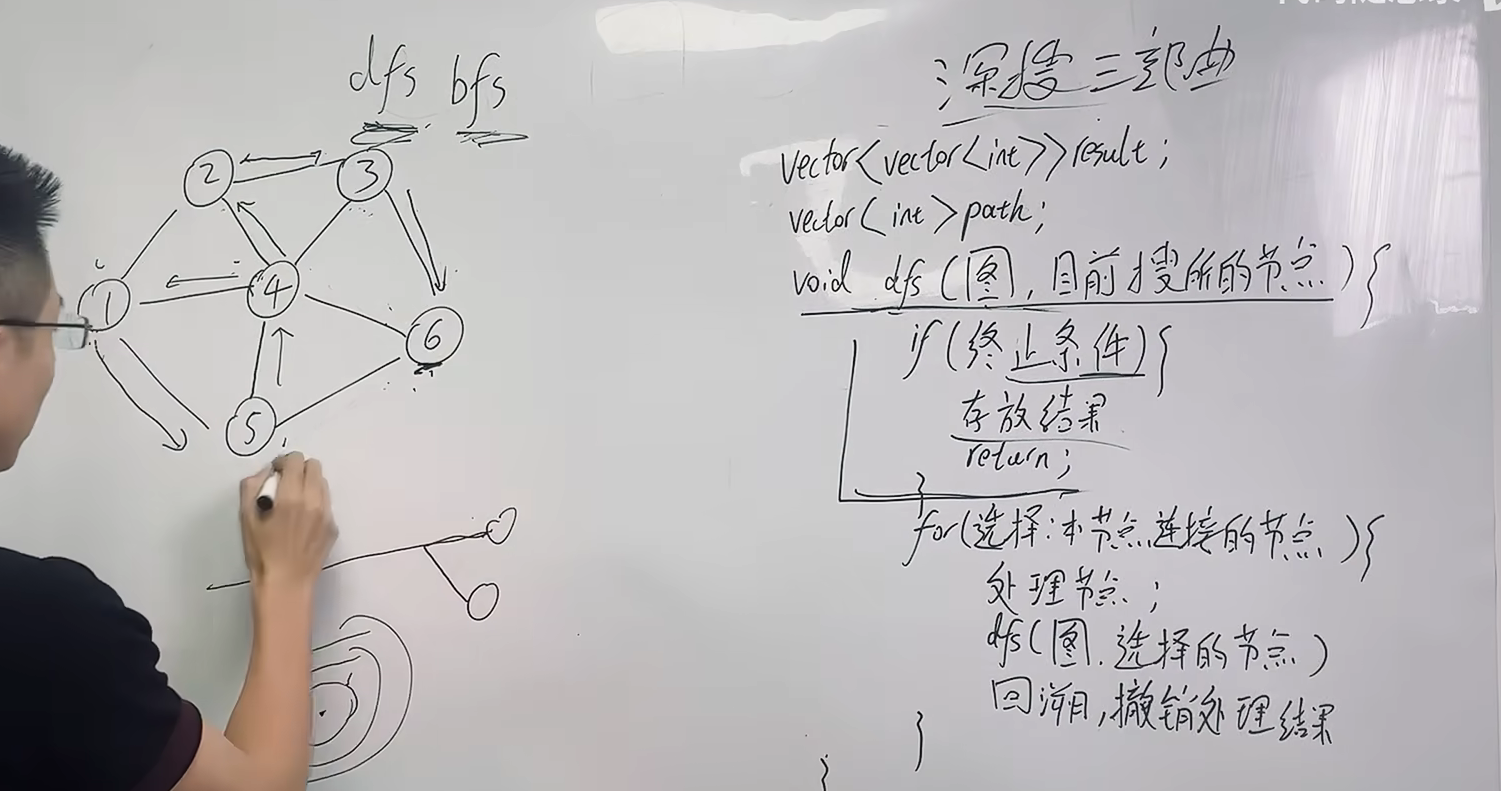 dfs bfs
2
3
1
4
6
5
深搜三部曲
vector<vector<int>>result;
vector<int>path;
void dfs(图,目前搜所的节点){
if(终止条件){
存放结果
return;
}
for(选择:本节点连接的节点){
处理节点;
dfs(图.选择的节点)
回溯,撤销处理结果
}
}